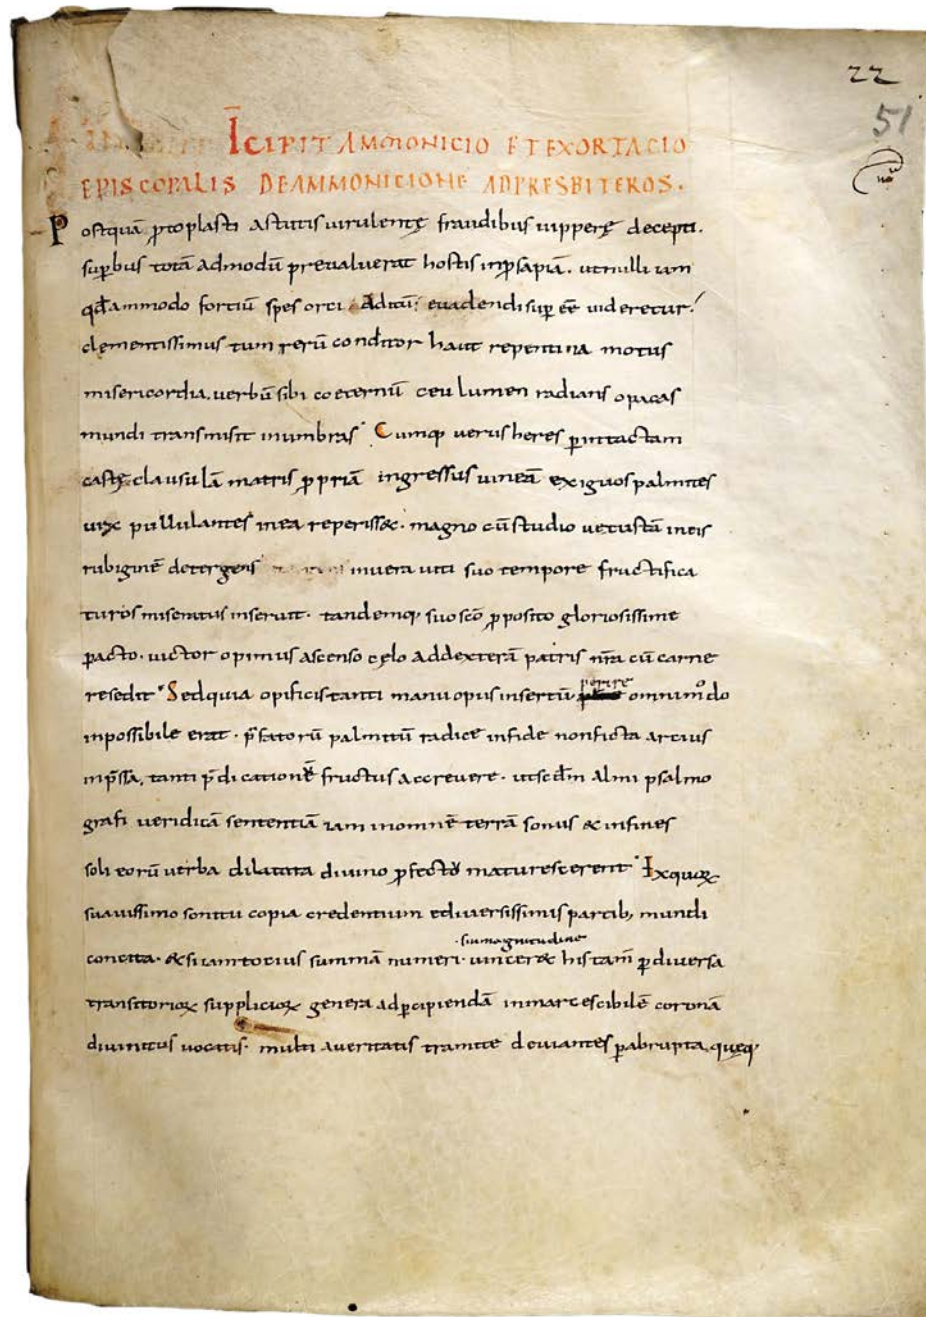 22
51
ĪCIPIT AMMONICIO ET EXORTACIO
EPISCOPALIS DE AMMONICIONE AD PRESBITEROS.
Postquā ꝓtoplasti astutis uirulentę fraudibus uipperę decepti.
suꝑbus totā admodū preualuerat hostis inꝓsapiā. ut nulli iam
qđammodo fortiū spes orci aditū euadendi suꝑ eē uideretur.
clementissimus tum rerū conditor haut repentina motus
misericordia, uerbū sibi coeternū ceu lumen radians opacas
mundi transmisit in umbras. Cumq; uerus heres ꝑ intactam
castę clausulā matris ꝓpriā ingressus uineā exiguos palmites
uix pullulantes in ea reperiss&. magno cū studio uetustā in eis
rubiginē detergens in uera uiti suo tempore fructifica
turos miseratus inseruit. tandemq; suo scō ꝓposito gloriosissime
ꝑacto. uictor opimus ascenso cęlo ad dexterā patris nr̄a cū carne
resedit. Sed quia opificis tanti manu opus insertū perire omnimodo
inpossibile erat. p̄fatorū palmitū radice in fide non ficta arcius
inp̄ssa, tanti p̄dicationē fructus accreuere. ut scdm̄ almi psalmo
grafi ueridicā sententiā iam in omnē terrā sonus & in fines
soli eorū uerba dilatata diuino ꝓfecto maturescerent. Ex quoꝝ
suauissimo sonitu copia credentium e diuersissimis partib; mundi
concita. & si iam tocius summā numeri. uincer& his tam̄ ꝑ diuersa
·siu magnitudine
transitorioꝝ supplicioꝝ genera ad ꝑcipiendā inmarcescibilē coronā
diuinitus uocatis. multi a ueritatis tramite deuiantes ꝑ abrupta, quęq;